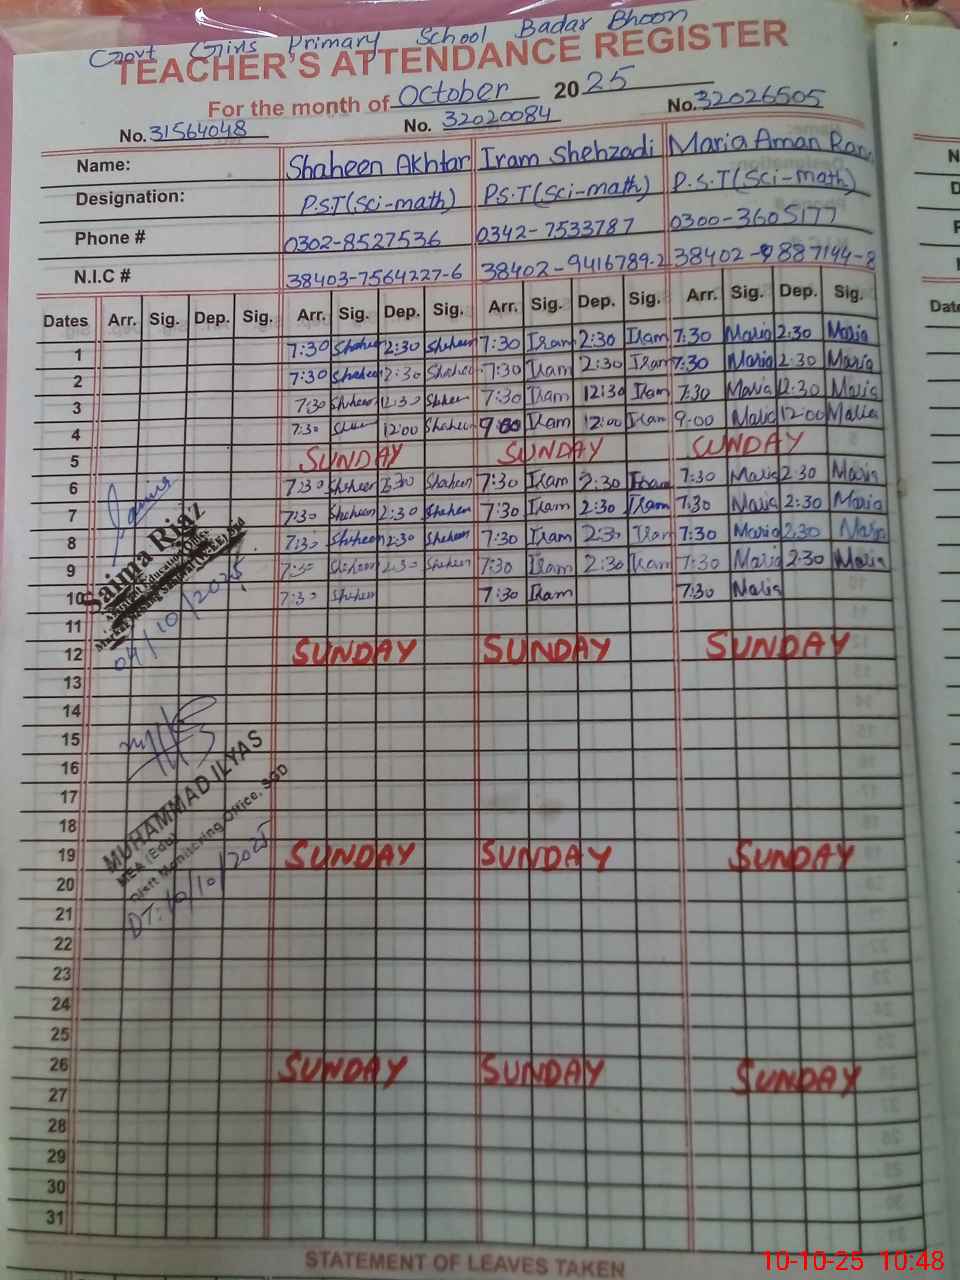 Govt Girls Primary School Badar Bhoon
TEACHER'S ATTENDANCE REGISTER
For the month of October 2025
No. 31564048 No. 32020084 No. 32026505
Name: Shaheen Akhtar Iram Shehzadi Maria Aman
Designation: P.S.T(Sci-math) P.S.T(Sci-math) P.S.T(Sci-math)
Phone # 0302-8527536 0342-7533787 0300-3605177
N.I.C # 38403-7564227-6 38402-9416789-2 38402-9887144-8
Dates Arr. Sig. Dep. Sig. Arr. Sig. Dep. Sig. Arr. Sig. Dep. Sig. Arr. Sig. Dep. Sig.
1 7:30 Shaheen 2:30 Shaheen 7:30 Iram 2:30 Iram 7:30 Maria 2:30 Maria
2 7:30 Shaheen 2:30 Shaheen 7:30 Iram 2:30 Iram 7:30 Maria 2:30 Maria
3 7:30 Shaheen 12:30 Shaheen 7:30 Iram 12:30 Iram 7:30 Maria 12:30 Maria
4 7:30 12:00 Shaheen 9:00 Iram 12:00 Iram 9:00 Maria 12:00 Maria
5 SUNDAY SUNDAY SUNDAY
6 7:30 Shaheen 2:30 Shaheen 7:30 Iram 2:30 Iram 7:30 Maria 2:30 Maria
7 7:30 Shaheen 2:30 Shaheen 7:30 Iram 2:30 Iram 7:30 Maria 2:30 Maria
8 7:30 Shaheen 2:30 Shaheen 7:30 Iram 2:30 Iram 7:30 Maria 2:30 Maria
9 7:30 Shaheen 2:30 Shaheen 7:30 Iram 2:30 Iram 7:30 Maria 2:30 Maria
10 7:30 Shaheen 7:30 Iram 7:30 Maria
Saima Riaz
04/10/2025
11
12 SUNDAY SUNDAY SUNDAY
13
14
15
16
17
18
MUHAMMAD ILYAS
MEA (Edu)
Distt Monitoring Office, SGD
DT: 10/10/2025
19 SUNDAY SUNDAY SUNDAY
20
21
22
23
24
25
26 SUNDAY SUNDAY SUNDAY
27
28
29
30
31
STATEMENT OF LEAVES TAKEN
10-10-25 10:48